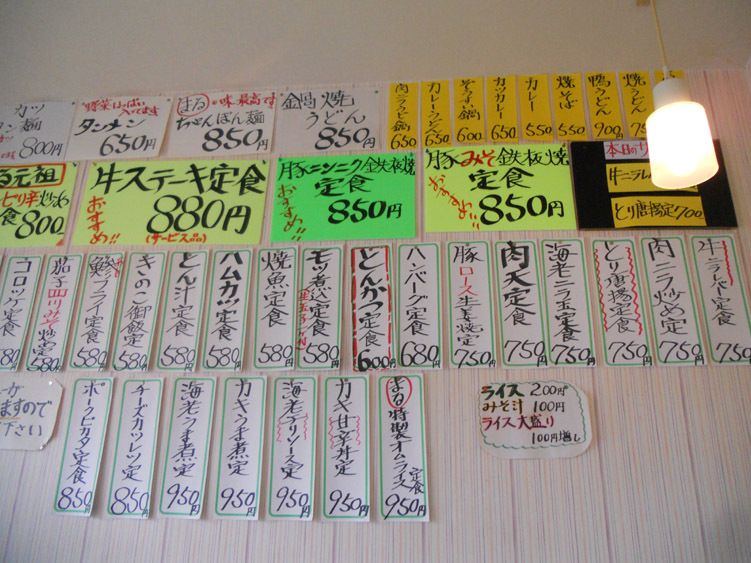 カツ
タン麺
800円
野菜いっぱい
入ってます
タンメン
650円
まるの味 最高です
ちゃんぽん麺
850円
鍋焼
うどん
850円
肉ニラピリ鍋 650
カレーうどん 650
ぞうすい鍋 600
カツカレー 650
カレー 550
焼そば 550
鴨うどん 900
焼うどん 750
る元祖
ピリ辛炒め
食800
牛ステーキ定食
おすすめ!!
880円
(サービス品)
豚ニンニク鉄板焼
定食
おすすめ!!
850円
豚みそ鉄板焼
定食
おすすめ!!
850円
本日の
牛ニラレバ
とり唐揚定700
コロッケ定食 580円
茄子四川みそ炒定 580円
鯵フライ定食 580円
きのこ御飯定 580円
とん汁定食 580円
ハムカツ定食 580円
焼魚定食 580円
モツ煮込定食 580円
とんかつ定食 600円
ハンバーグ定食 680円
豚ロース生姜焼定 750円
肉天定食 750円
海老ニラ玉定食 750円
とり唐揚定食 750円
肉ニラ炒め定 750円
牛ニラレバー定食 750円
が
ますので
下さい
ポークピカタ定食 850円
チーズカツレツ定 850円
海老うま煮定 950円
カキうま煮定 950円
海老チリソース定 950円
カキ甘辛丼定 950円
まる特製オムライス定食 950円
ライス 200円
みそ汁 100円
ライス大盛り
100円増し